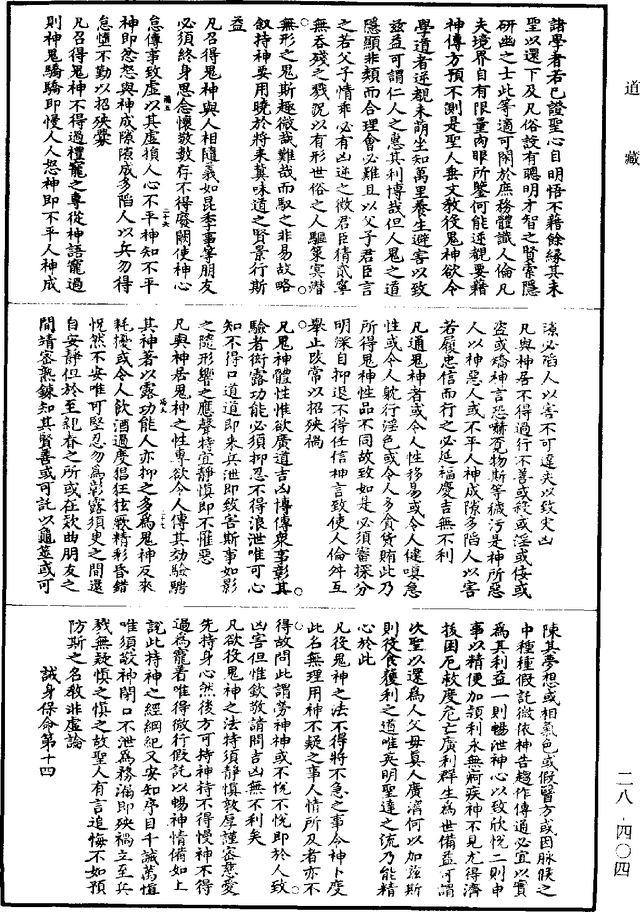 道藏
諸學者若已證聖心自明悟不藉餘緣其未
聖以還下及凡俗設有聰明才智之賢索隱
研幽之士此等適可閑於庶務體識人倫凡
夫境界自有限量內眼所鑒何能逆覩要藉
神傳方預不測是聖人垂文教役鬼神欲令
學道者逆覩未萌坐知萬里養生避害以致
茲益可謂仁人之惠其利博哉但人鬼之道
隱顯非類而合理會必難且以父子君臣言
之若父子情乖必有凶逆之微君臣猜貳寧
無吞殘之戮況以有形世俗之人驅策冥潛
無形之鬼斯趣微哉難哉而馭之非易故略
敍持神要用曉於將來冀味道之賢景行斯
益
凡召得鬼神與人相隨義如昆季事等朋友
必須終身思念懷敬數存不得廢闕使神心
怠傳事致虛以其虛損人心不平神知不平
神即忿怒與神成隙隙成多陷人以兵勿得
怠墮不勤以招殃釁
凡召得鬼神不得過禮寵之專從神語寵過
則神鬼驕驕即慢人人怒神即不平人神成
隙必陷人以害不可違失以致灾凶
凡與神居不得過行不善或殺或淫或佞或
盜或矯神言恐嚇覓物斯等穢污是神所惡
人以神惡人或不平人神成隙多陷人以害
若履忠信而行之必延福慶吉無不利
凡通鬼神者或令人性移易或令人健嗔急
性或令人躭行淫色或令人多貪貨賄此乃
所得鬼神性品不同故致如是必須審探分
明深自抑退不得任信神言致使人倫舛互
舉止改常以招殃禍
凡鬼神體性惟欲廣道吉凶博傳衆事彰其
驗者衒露功能必須抑忍不得浪泄唯可心
知不得口道道即朱兵泄即致害斯事如影
之隨形響之應聲特宜靜慎即不罹惡
凡與神居鬼神之性專欲令人傳其効驗騁
其神著以露功能人亦抑之多爲鬼神反來
耗擾或令人飲酒過度猖狂弦歌精彩昏錯
怳然不安唯可堅忍勿爲彰露須臾之間還
自安靜但於至親眷之所或在欵曲朋友之
間請審熟鍊知其賢善或可託以龜筮或可
陳其夢想或相氣色或假醫方或因脉候之
中種種假託微依神旨趍作傳通必宜以實
爲其利益一則暢泄神心以致欣悅二則申
事以精便加頴利永無痾疾神不見尤得濟
拔困厄救度危亡廣利群生爲世備益可謂
次聖以還爲人父母眞人廣濟何以加茲斯
則役食獲利之道唯英明聖達之流乃能精
心於此
凡役鬼神之法不得將不急之事令神卜度
此名無理用神不疑之事人情所及者亦不
得故問此謂勞神神或不悅不悅即於人致
凶害但惟欽敬請問吉凶無不利矣
凡欲役鬼神之法持須靜慎敦厚謹審慈愛
先持身心然後方可持神待不得慢神不得
過爲寵者唯得微行假託以暢神情備如上
說此持神之經綱紀又安如序目千誡萬恒
唯須敬神閉口不泄爲務漏即殃禍立至兵
戮無疑慎之慎之故聖人有言追悔不如預
防斯之名教非虛論
誠身保命第十四
二八-四〇四